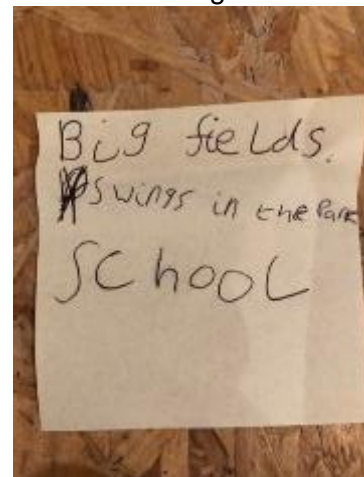 Big fields.
Swings in the Park
School